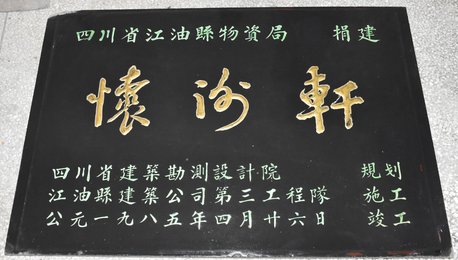 四川省江油縣物資局 捐建
懷謝軒
四川省建築勘測設計院 規划
江油縣建築公司第三工程隊 施工
公元一九八五年四月廿六日 竣工